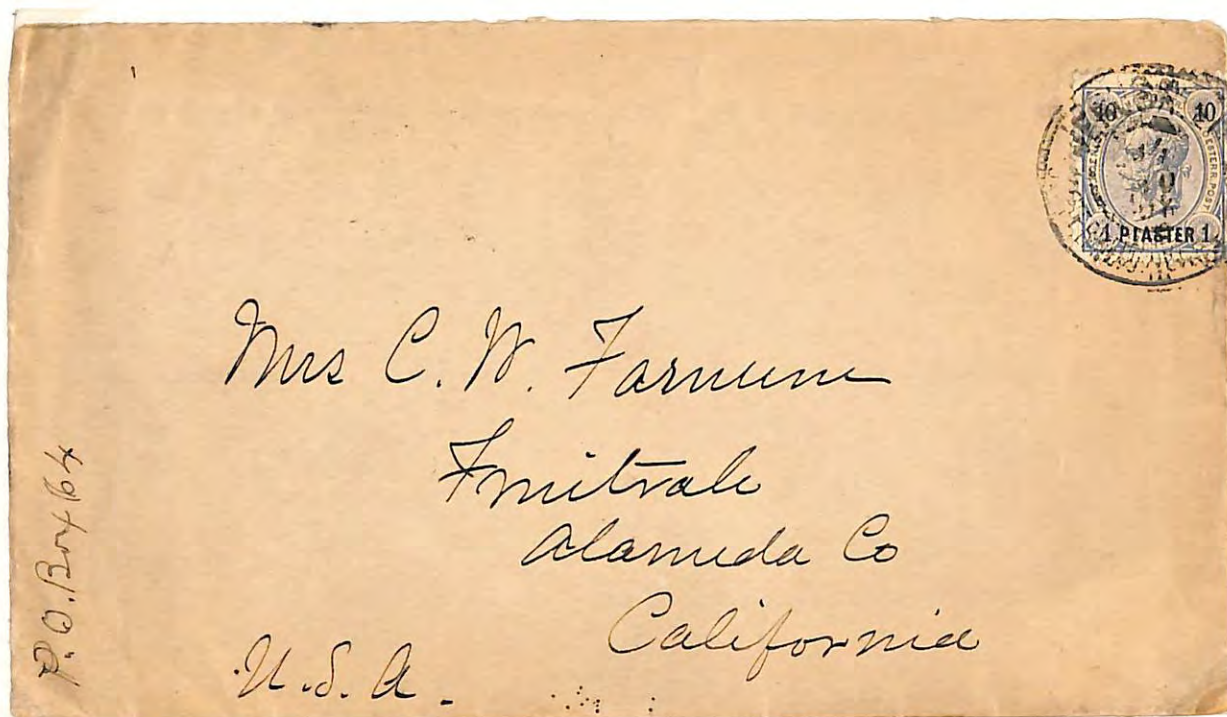 10 10
ESTERR. POST
1 PIASTER 1
Mrs C. W. Farnum
Fruitvale
Alameda Co
California
U.S.A.
P.O. Box 64